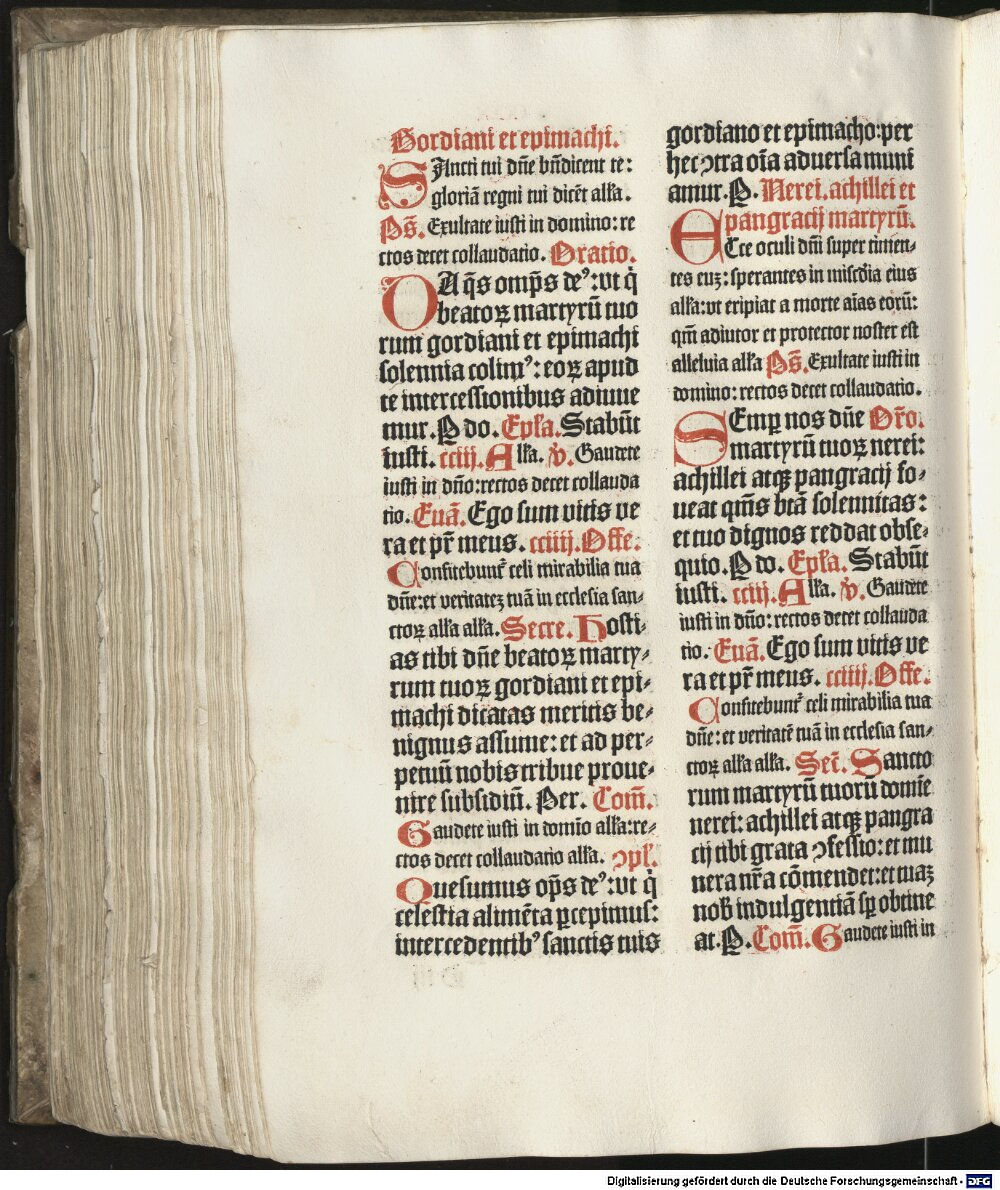 Gordiani et epimachi.
SAncti tui dñe bñdicent te:
gloriã regni tui dicẽt alľa.
Ps̃. Exultate iusti in domino: re
ctos decet collaudatio. Oratio.
DA q̃s omp̃s deꝰ: vt q̇
beatoꝝ martyrũ tuo
rum gordiani et epimachi
solennia colimꝰ: eoꝝ apud
te intercessionibus adiuue
mur. P do. Epľa. Stabũt
iusti. cciij. Alľa. v̇. Gaudete
iusti in dño: rectos decet collauda
tio. Euã. Ego sum vitis ve
ra et pr̃ meus. cciiij. Offe.
Confitebunt̃ celi mirabilia tua
dñe: et veritateꝫ tuã in ecclesia san⸗
ctoꝝ alľa alľa. Secre. Hosti⸗
as tibi dñe beatoꝝ marty⸗
rum tuoꝝ gordiani et epi⸗
machi dicatas meritis be⸗
nignus assume: et ad per⸗
petuũ nobis tribue proue⸗
nire subsidiũ. Per. Com̃.
Gaudete iusti in domĩo alľa: re⸗
ctos decet collaudatio alľa. ꝯpľ.
Quesumus op̃s deꝰ: vt q̇
celestia alimẽta ꝑcepimus:
intercedentibꝰ sanctis tuis
gordiano et epimacho: per
hec ꝯtra oĩa aduersa muni
amur. P. Nerei. achillei et
pangracij martyrũ.
ECce oculi dñi super timen⸗
tes euꝫ: sperantes in miscd̃ia eius
alľa: vt eripiat a morte aĩas eorũ:
qm̃ adiutor et protector noster est
alleluia alľa Ps̃. Exultate iusti in
domino: rectos decet collaudatio.
SEmꝑ nos dñe Or̃o.
martyrũ tuoꝝ nerei:
achillei atqꝫ pangracij fo⸗
ueat qm̃s btã solennitas:
et tuo dignos reddat obse⸗
quio. P do. Epľa. Stabũt
iusti. cciij. Alľa. v̇. Gaudete
iusti in dño: rectos decet collauda
tio. Euã. Ego sum vitis ve
ra et pr̃ meus. cciiij. Offe.
Confitebunt̃ celi mirabilia tua
dñe: et veritatẽ tuã in ecclesia san⸗
ctoꝝ alľa alľa. Sec̃. Sancto
rum martyrũ tuorũ domĩe
nerei: achillei atqꝫ pangra
cij tibi grata ꝯfessio: et mu
nera nr̃a cõmendet: et tuaꝫ
nob̃ indulgentiã sꝑ obtine
at. P. Com̃. Gaudete iusti in
Digitalisierung gefördert durch die Deutsche Forschungsgemeinschaft - DFG